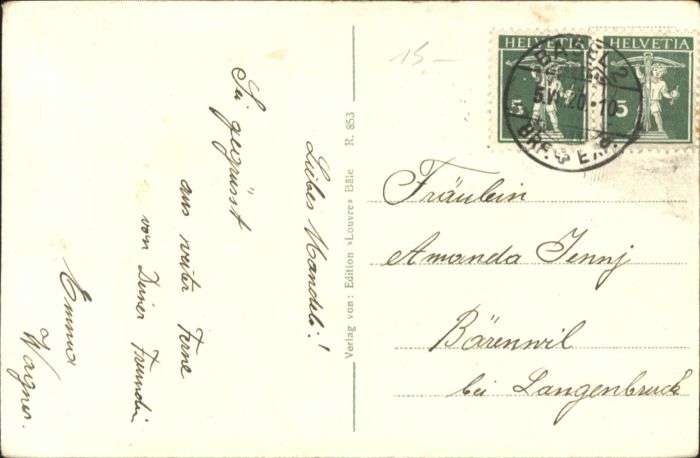 15-
HELVETIA
HELVETIA
5
5
BASEL 2
10
BRF.
Liebes Mandeli!
Sei gegrüsst
aus weiter Ferne
von Deiner Freundin
Emma
Wagner.
Verlag von: Edition »Louvre« Bâle R. 853
Fräulein
Amanda Jennj
Bärenwil
bei Langenbruck